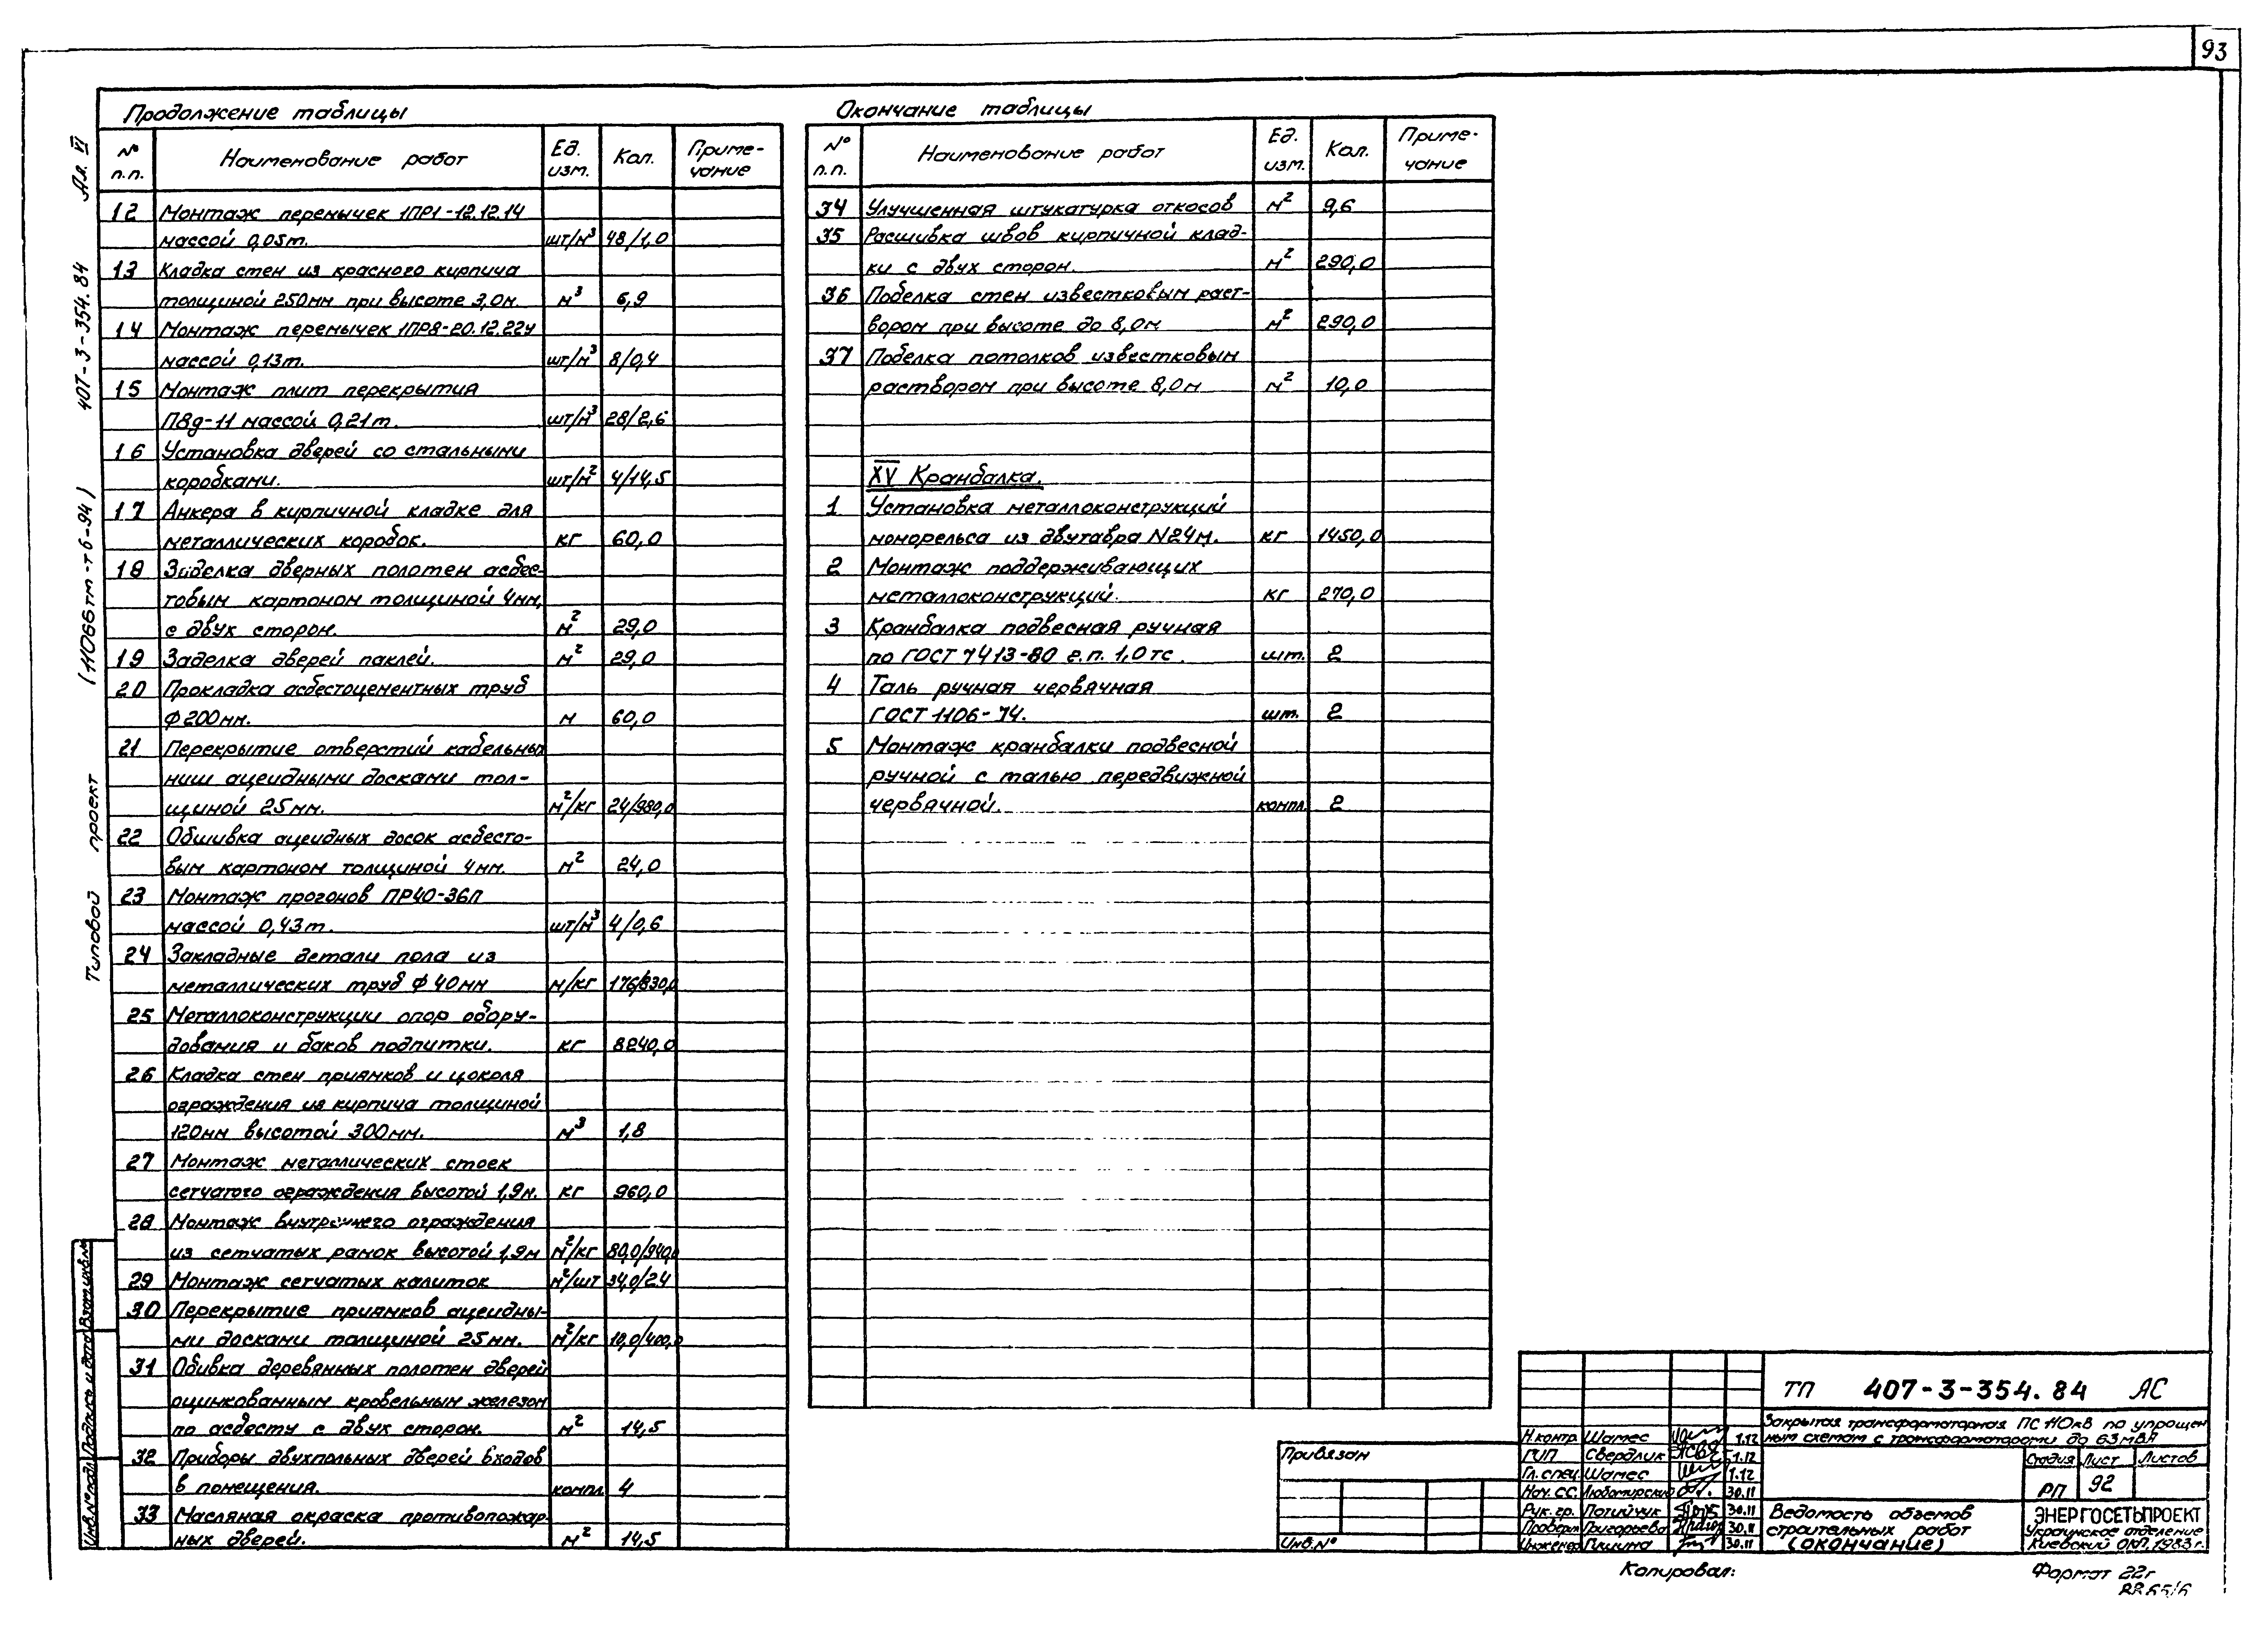 93
Продолжение таблицы
№ п.п. Наименование работ Ед. изм. Кол. Приме-чание
12 Монтаж перемычек 1ПР1-12.12.14
массой 0,05т. шт/м³ 48/1,0
13 Кладка стен из красного кирпича
толщиной 250мм при высоте 3,0м м³ 6,9
14 Монтаж перемычек 1ПР8-20.12.22у
массой 0,13т. шт/м³ 8/0,4
15 Монтаж плит перекрытия
П8д-11 массой 0,21т. шт/м³ 28/2,6
16 Установка дверей со стальными
коробками. шт/м² 4/14,5
17 Анкера в кирпичной кладке для
металлических коробок. кг 60,0
18 Заделка дверных полотен асбес-
товым картоном толщиной 4мм,
с двух сторон. м² 29,0
19 Заделка дверей паклей. м² 29,0
20 Прокладка асбестоцементных труб
Ф200мм. м 60,0
21 Перекрытие отверстий кабельных
ниш ацеидными досками тол-
щиной 25мм. м²/кг 24/980,0
22 Обшивка ацеидных досок асбесто-
вым картоном толщиной 4мм. м² 24,0
23 Монтаж прогонов ПР40-36П
массой 0,43т. шт/м³ 4/0,6
24 Закладные детали пола из
металлических труб Ф40мм м/кг 176/830,0
25 Металлоконструкции опор обору-
дования и баков подпитки. кг 8240,0
26 Кладка стен приямков и цоколя
ограждения из кирпича толщиной
120мм высотой 300мм. м³ 1,8
27 Монтаж металлических стоек
сетчатого ограждения высотой 1,9м. кг 960,0
28 Монтаж внутреннего ограждения
из сетчатых рамок высотой 1,9м м²/кг 80,0/940,0
29 Монтаж сетчатых калиток м²/шт 34,0/24
30 Перекрытие приямков ацеидны-
ми досками толщиной 25мм. м²/кг 10,0/400,0
31 Обивка деревянных полотен дверей
оцинкованным кровельным железом
по асбесту с двух сторон. м² 14,5
32 Приборы двухпольных дверей входов
в помещения. компл. 4
33 Масляная окраска противопожар-
ных дверей. м² 14,5
Окончание таблицы
№ п.п. Наименование работ Ед. изм. Кол. Приме-чание
34 Улучшенная штукатурка откосов м² 9,6
35 Расшивка швов кирпичной клад-
ки с двух сторон. м² 290,0
36 Побелка стен известковым раст-
вором при высоте до 8,0м м² 290,0
37 Побелка потолков известковым
раствором при высоте 8,0м м² 10,0
XV Кранбалка.
1 Установка металлоконструкций
монорельса из двутавра N24м. кг 1450,0
2 Монтаж поддерживающих
металлоконструкций. кг 270,0
3 Кранбалка подвесная ручная
по ГОСТ 7413-80 г.п. 1,0тс. шт. 2
4 Таль ручная червячная
ГОСТ 1106-74. шт. 2
5 Монтаж кранбалки подвесной
ручной с талью передвижной
червячной. компл. 2
Типовой проект (11066тм-т6-94) 407-3-354.84 Ал. VI
Инв.№подл. Подпись и дата Взам.инв.№
Привязан
Инв.№
Н.контр. Шамес 1.12
ГИП Свердлик 1.12
Гл.спец. Шамес 1.12
Нач.СС. Любомирский 30.11
Рук.гр. Потийчук 30.11
Проверил Григорьева 30.11
Инженер 30.11
ТП 407-3-354.84 АС
Закрытая трансформаторная ПС 110кВ по упрощен
ным схемам с трансформаторами до 63мВА
Стадия Лист Листов
РП 92
Ведомость объемов
строительных работ
(окончание)
ЭНЕРГОСЕТЬПРОЕКТ
Украинское отделение
Киевский ОКП, 1983г.
Копировал:
Формат 22г
8865/6